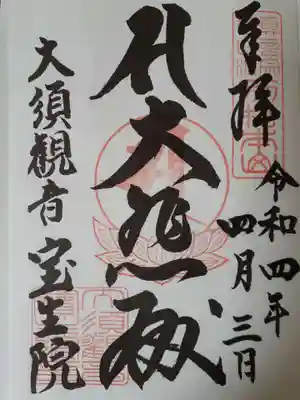 奉拝
令和四年
四月三日
大悲殿
大須観音 宝生院